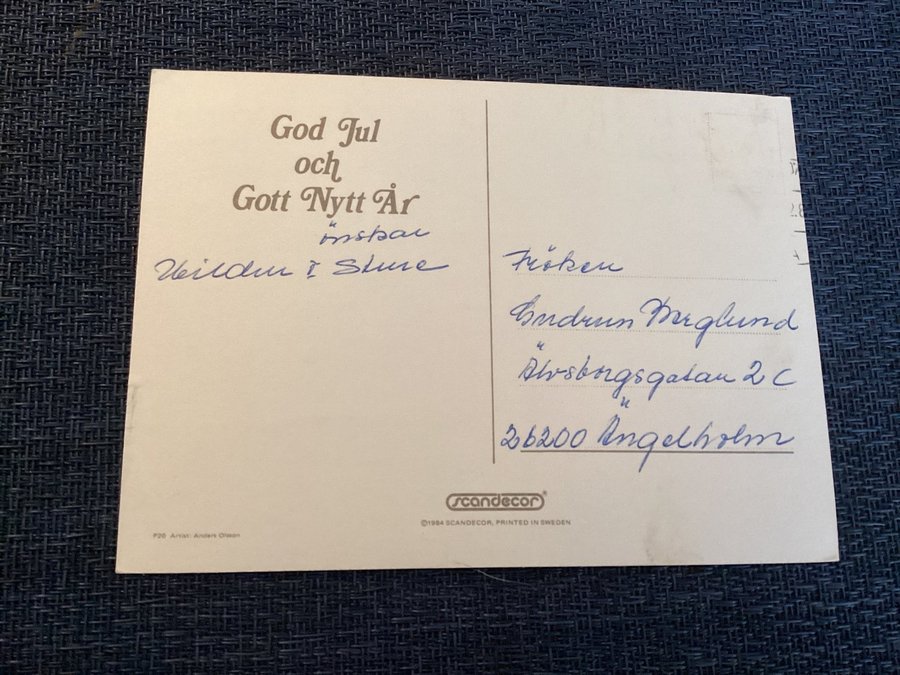 God Jul
och
Gott Nytt År
önskar
Sture
Fröken
Gudrun Berglund
Älvsborgsgatan 2 C
26200 Ängelholm
scandecor®
©1984 SCANDECOR, PRINTED IN SWEDEN
P20 Artist: Anders Olsson